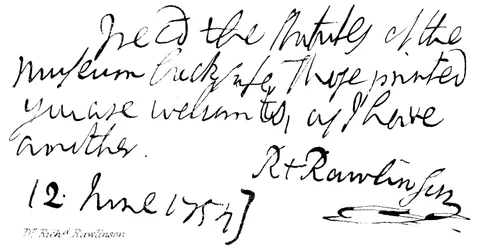 I rec'd the Statutes of the
Museum back safe, Those printed
you are welcom to, as I have
another.
R + Rawlinson
12. June 1754
Dr. Richd. Rawlinson